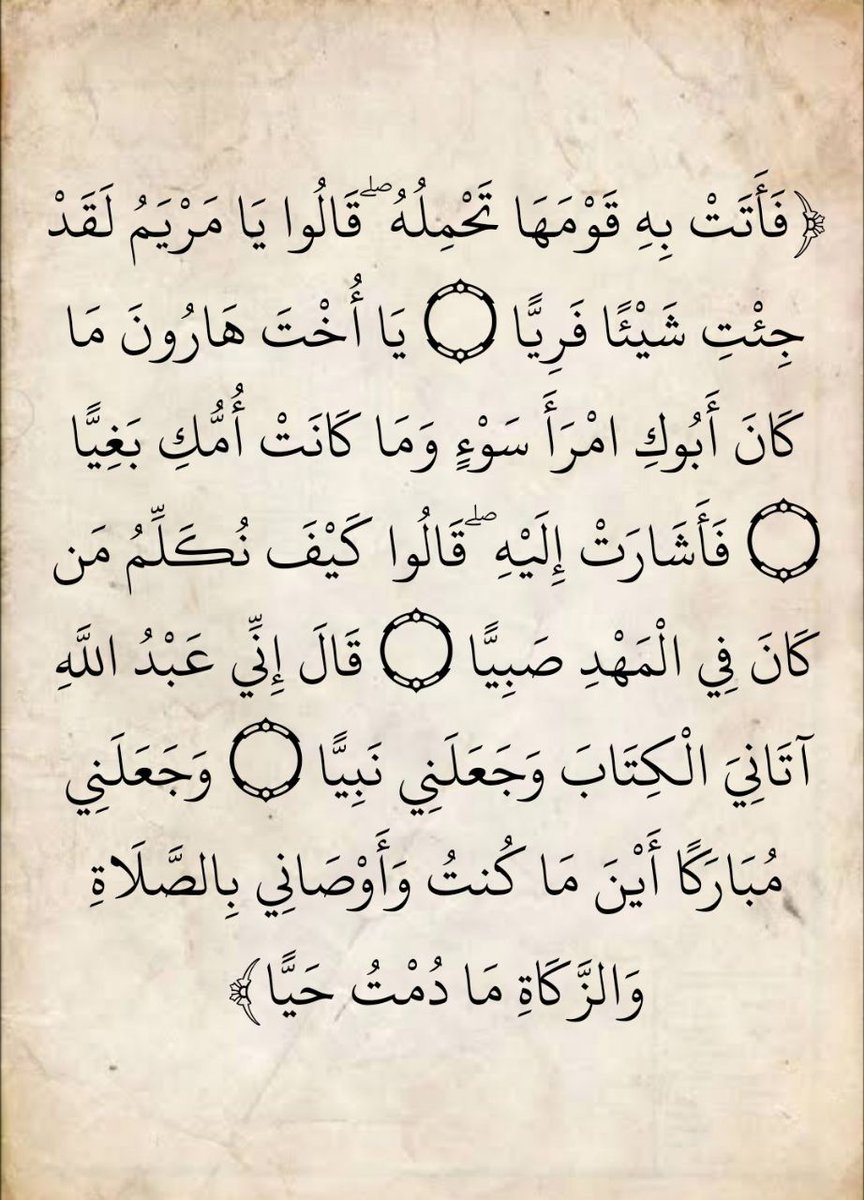 ﴿فَأَتَتْ بِهِ قَوْمَهَا تَحْمِلُهُ ۖ قَالُوا يَا مَرْيَمُ لَقَدْ
جِئْتِ شَيْئًا فَرِيًّا ۝ يَا أُخْتَ هَارُونَ مَا
كَانَ أَبُوكِ امْرَأَ سَوْءٍ وَمَا كَانَتْ أُمُّكِ بَغِيًّا
۝ فَأَشَارَتْ إِلَيْهِ ۖ قَالُوا كَيْفَ نُكَلِّمُ مَن
كَانَ فِي الْمَهْدِ صَبِيًّا ۝ قَالَ إِنِّي عَبْدُ اللَّهِ
آتَانِيَ الْكِتَابَ وَجَعَلَنِي نَبِيًّا ۝ وَجَعَلَنِي
مُبَارَكًا أَيْنَ مَا كُنتُ وَأَوْصَانِي بِالصَّلَاةِ
وَالزَّكَاةِ مَا دُمْتُ حَيًّا﴾